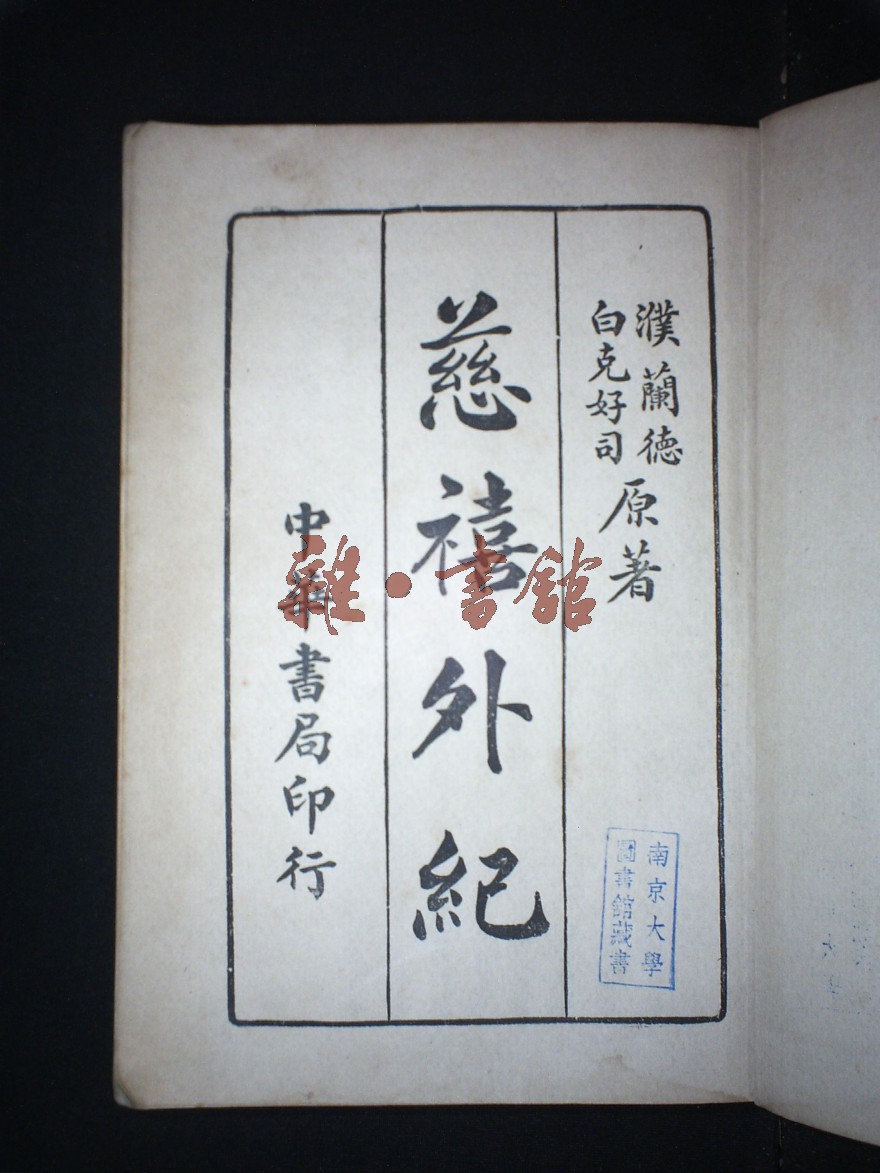 濮蘭德
白克好司
原著
慈禧外紀
中華書局印行
雜·書館
南京大學
圖書館藏書